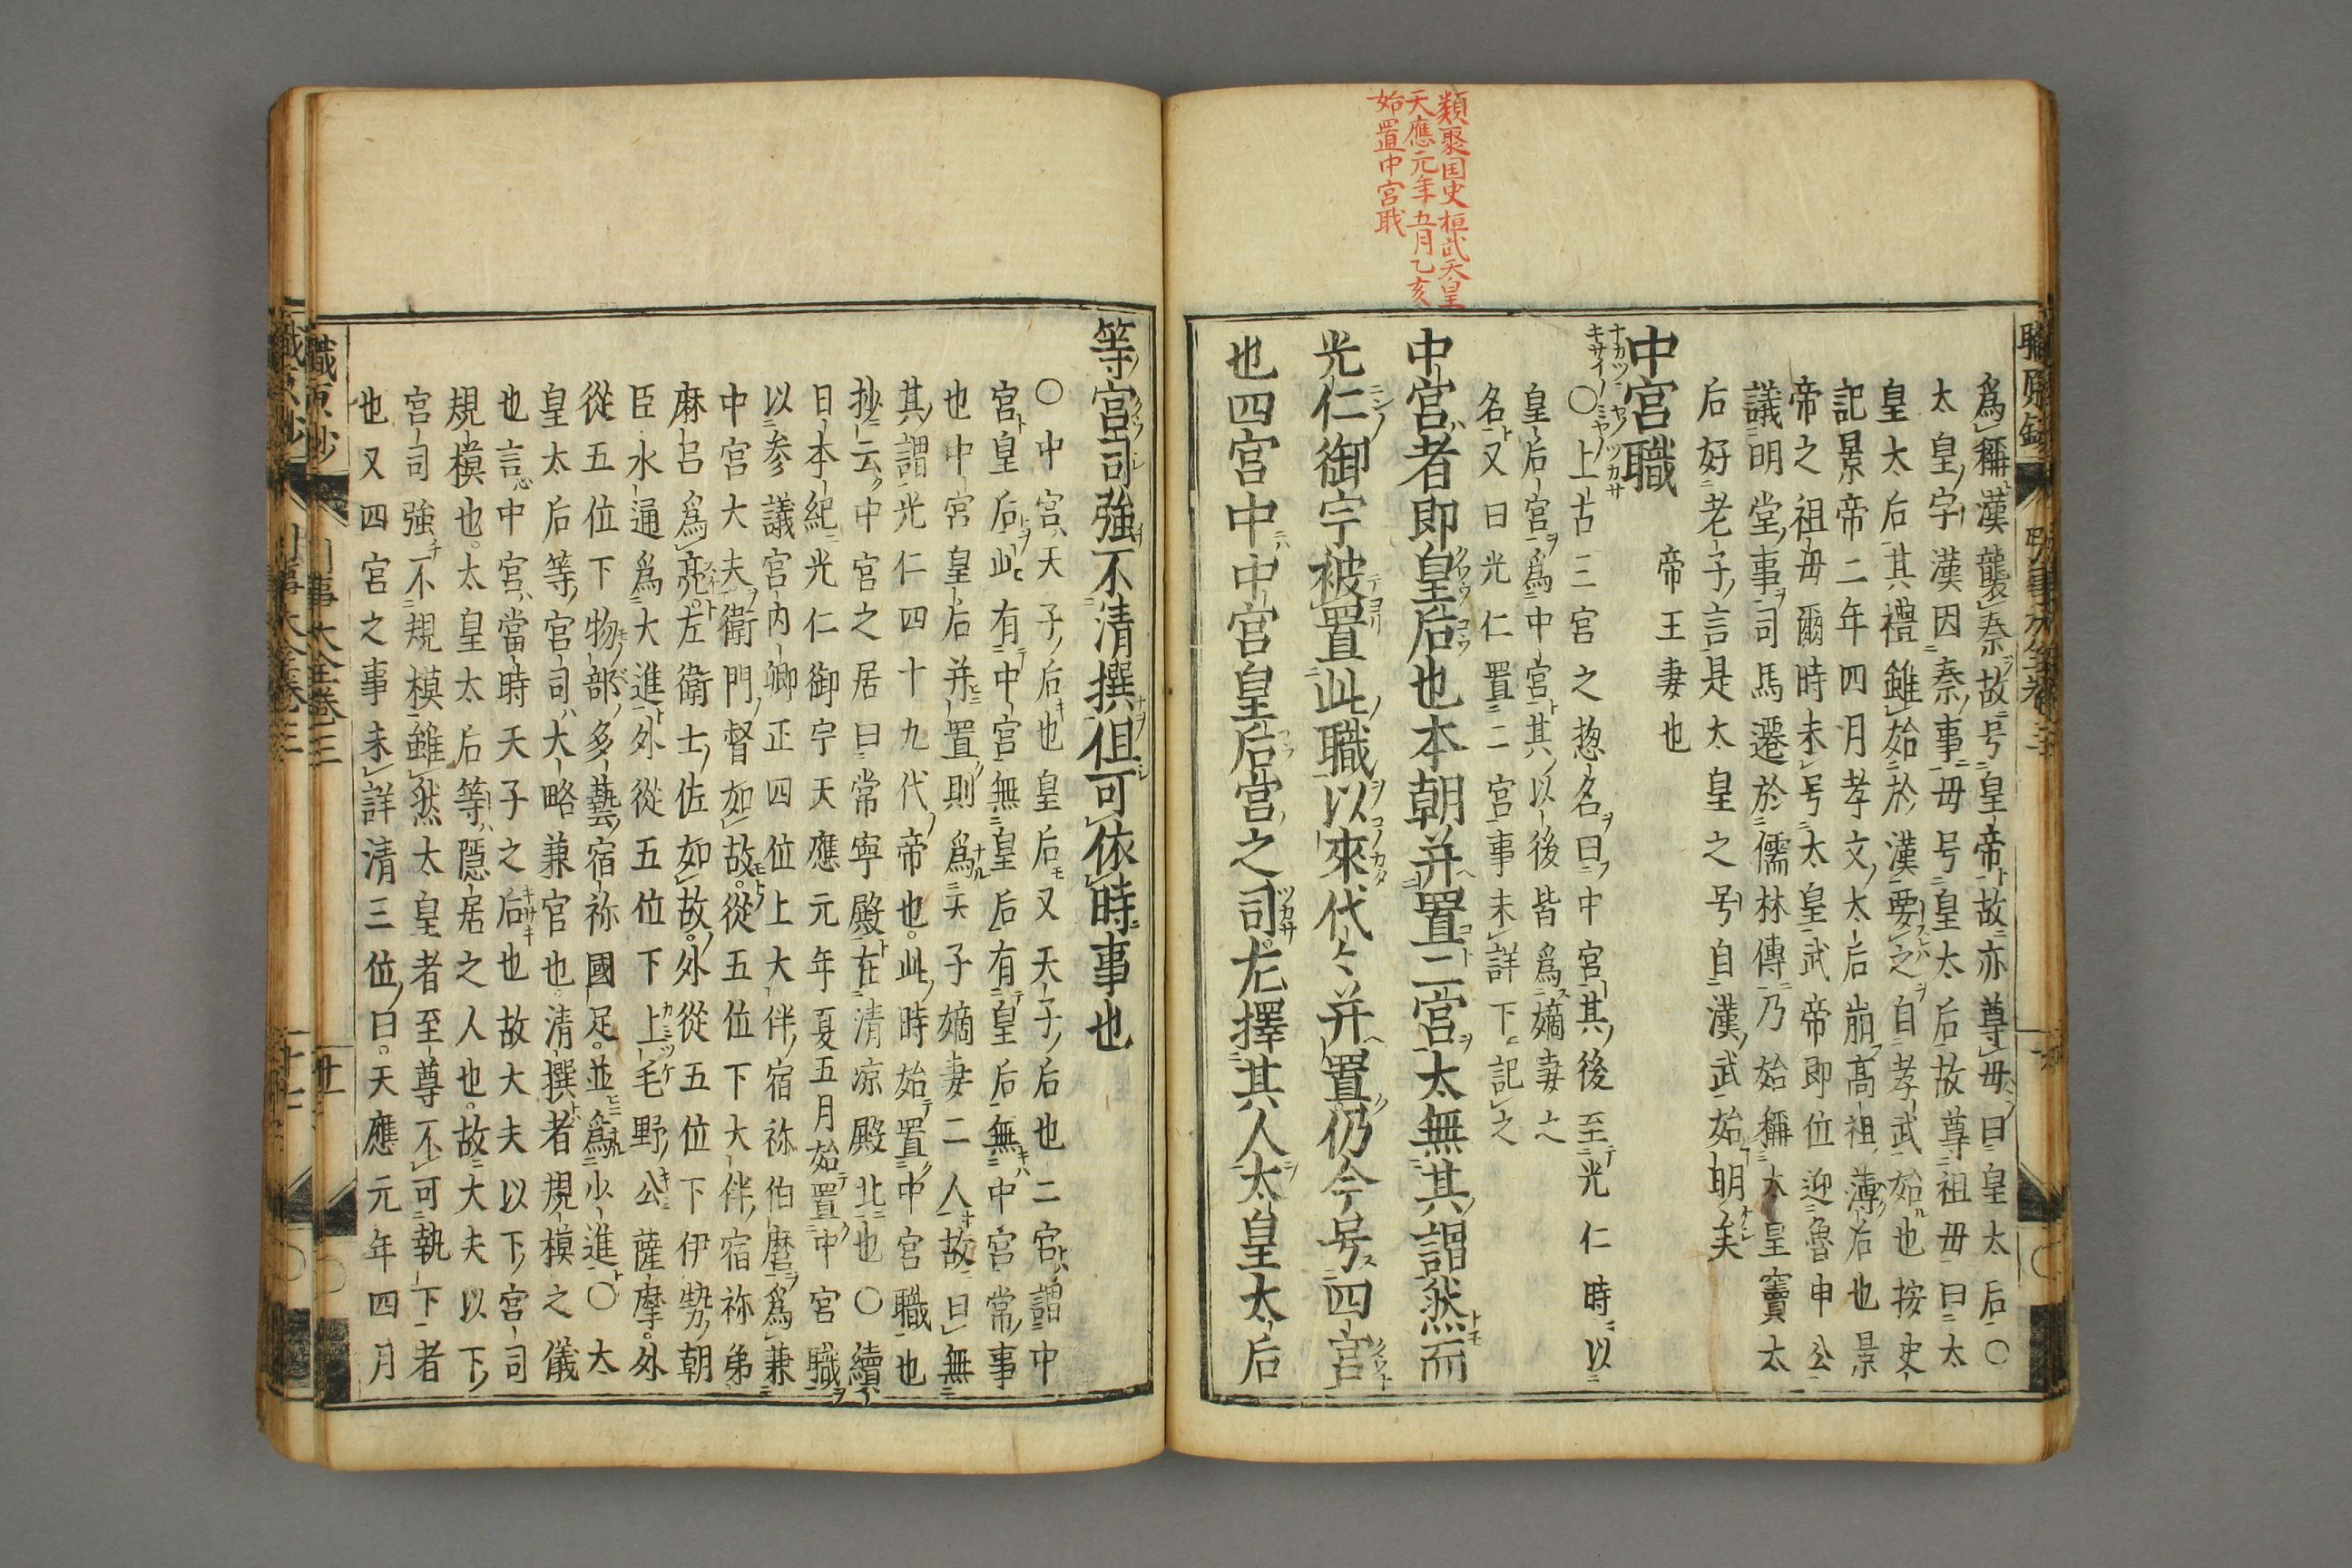 類聚国史桓武天皇
天應元年五月乙亥
始置中宮職
爲稱漢襲秦故号皇帝故亦尊毋曰皇太后〇
太皇字漢因秦事毋号皇太后故尊祖毋曰太
皇太后其禮雖始於漢要之自孝武始也按史
記景帝二年四月孝文太后崩高祖薄后也景
帝之祖毋爾時未号太皇武帝即位迎魯申公
議明堂事司馬遷於儒林傳乃始稱太皇竇太
后好老子言是太皇之号自漢武始明矣
帝王妻也
中宮職
ナカツミヤノツカサ
キサイノミヤノ
〇上古三宮之惣名曰中宮其後至光仁時以
皇后宮爲中宮其以後皆爲嫡妻之
名又曰光仁置二宮事未詳下記之
中宮者即皇后也本朝并置二宮太無其謂然而
光仁御宇被置此職以來代々并置仍今号四宮
也四宮中中宮皇后宮之司尤擇其人太皇太后
等宮司強不清撰但可依時事也
〇中宮天子后也皇后又天子后也二宮謂中
宮皇后此有中宮無皇后有皇后無中宮常事
也中宮皇后并置則爲天子嫡妻二人故曰無
其謂光仁四十九代帝也此時始置中宮職也
抄云中宮之居曰常寧殿在清凉殿北也〇續
日本紀光仁御宇天應元年夏五月始置中宮職
以参議宮内卿正四位上大伴宿祢伯麿爲兼
中宮大夫衛門督如故從五位下大伴宿祢弟
麻呂爲亮左衛士佐如故外從五位下伊勢朝
臣水通爲大進外從五位下上毛野公薩摩外
從五位下物部多藝宿祢國足並爲少進〇太
皇太后等宮司大略兼官也清撰者規模之儀
也言中宮當時天子之后也故大夫以下宮司
規模也太皇太后等隱居之人也故大夫以下
宮司強不規模雖然太皇者至尊不可執下者
也又四宮之事未詳清三位曰天應元年四月